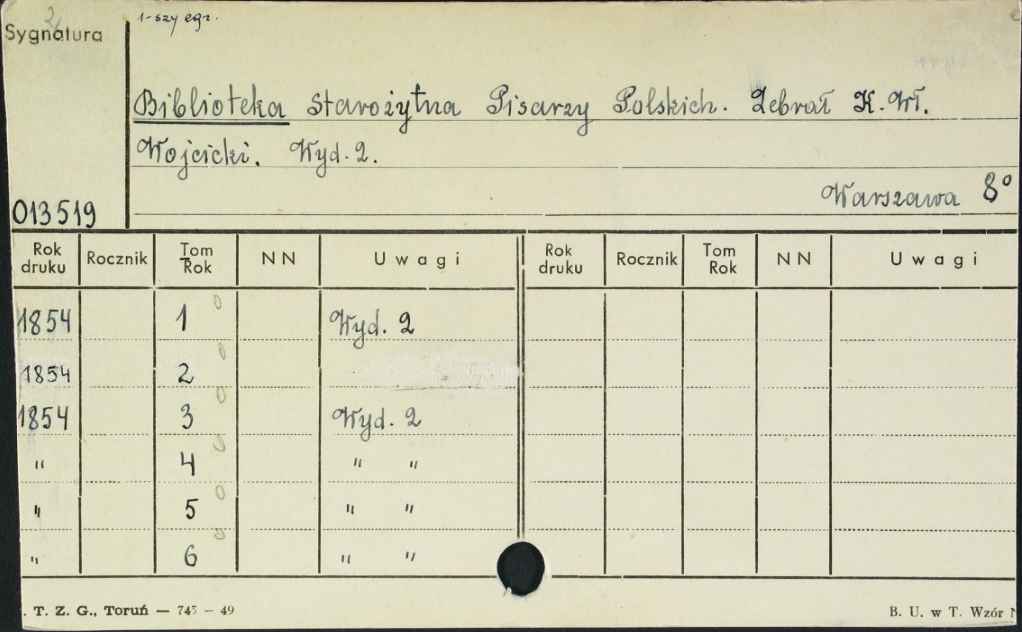 Sygnatura
1-szy egz.
Biblioteka Starożytna Pisarzy Polskich. Zebrał K. Wł.
Wojcicki. Wyd. 2.
Warszawa 8°
013519
Rok druku Rocznik Tom Rok NN Uwagi Rok druku Rocznik Tom Rok NN Uwagi
1854 1 0 Wyd. 2
1854 2 0
1854 3 0 Wyd. 2
" 4 0 " "
" 5 0 " "
" 6 0 " "
. T. Z. G., Toruń — 745 — 49
B. U. w T. Wzór